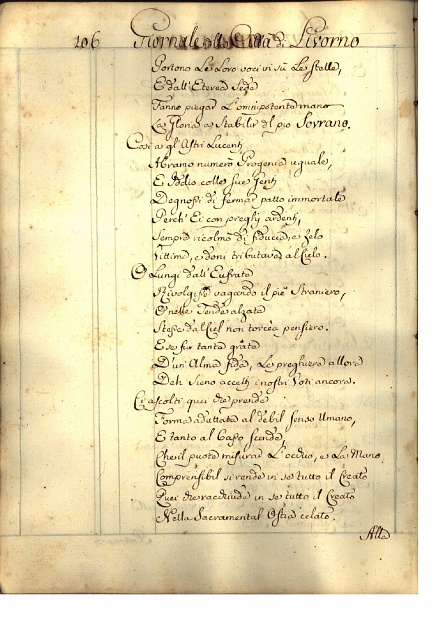 106 Giornale della Città di Livorno
Portono Le Loro voci in sù Le stelle,
E dall'Eterea Sede
Fanno piegar L'omnipotente mano
La Gloria a Stabilir del pio Sovrano.
Così a gl'Astri Lucenti
Abramo numerò Progenie uguale,
E Iddio colle sue Genti
Degnossi di fermar patto immortale
Perch'Ei con preghi ardenti,
Sempre ricolmo di fiducia, e zelo
Vittime, e doni tributava al Cielo.
O Lungi dall'Eufrate
Rivolgesse vagando il piè Straniero,
O nelle Tende alzate
Stesse dal Ciel non torcea pensiero.
E se fur tanto grate
D'un'Alma fida, Le preghiere allora
Deh Sieno accetti i nostri Voti ancora.
Ci ascolti quei che prende
Forma adattata al debil senso Umano,
E tanto al Basso scende,
Che il puote misurar L'occhio, e La Mano
Comprensibil si rende in se tutto il Creato
Quei che racchiude in se tutto il Creato
Nella Sacramental Ostia celato.
Alla